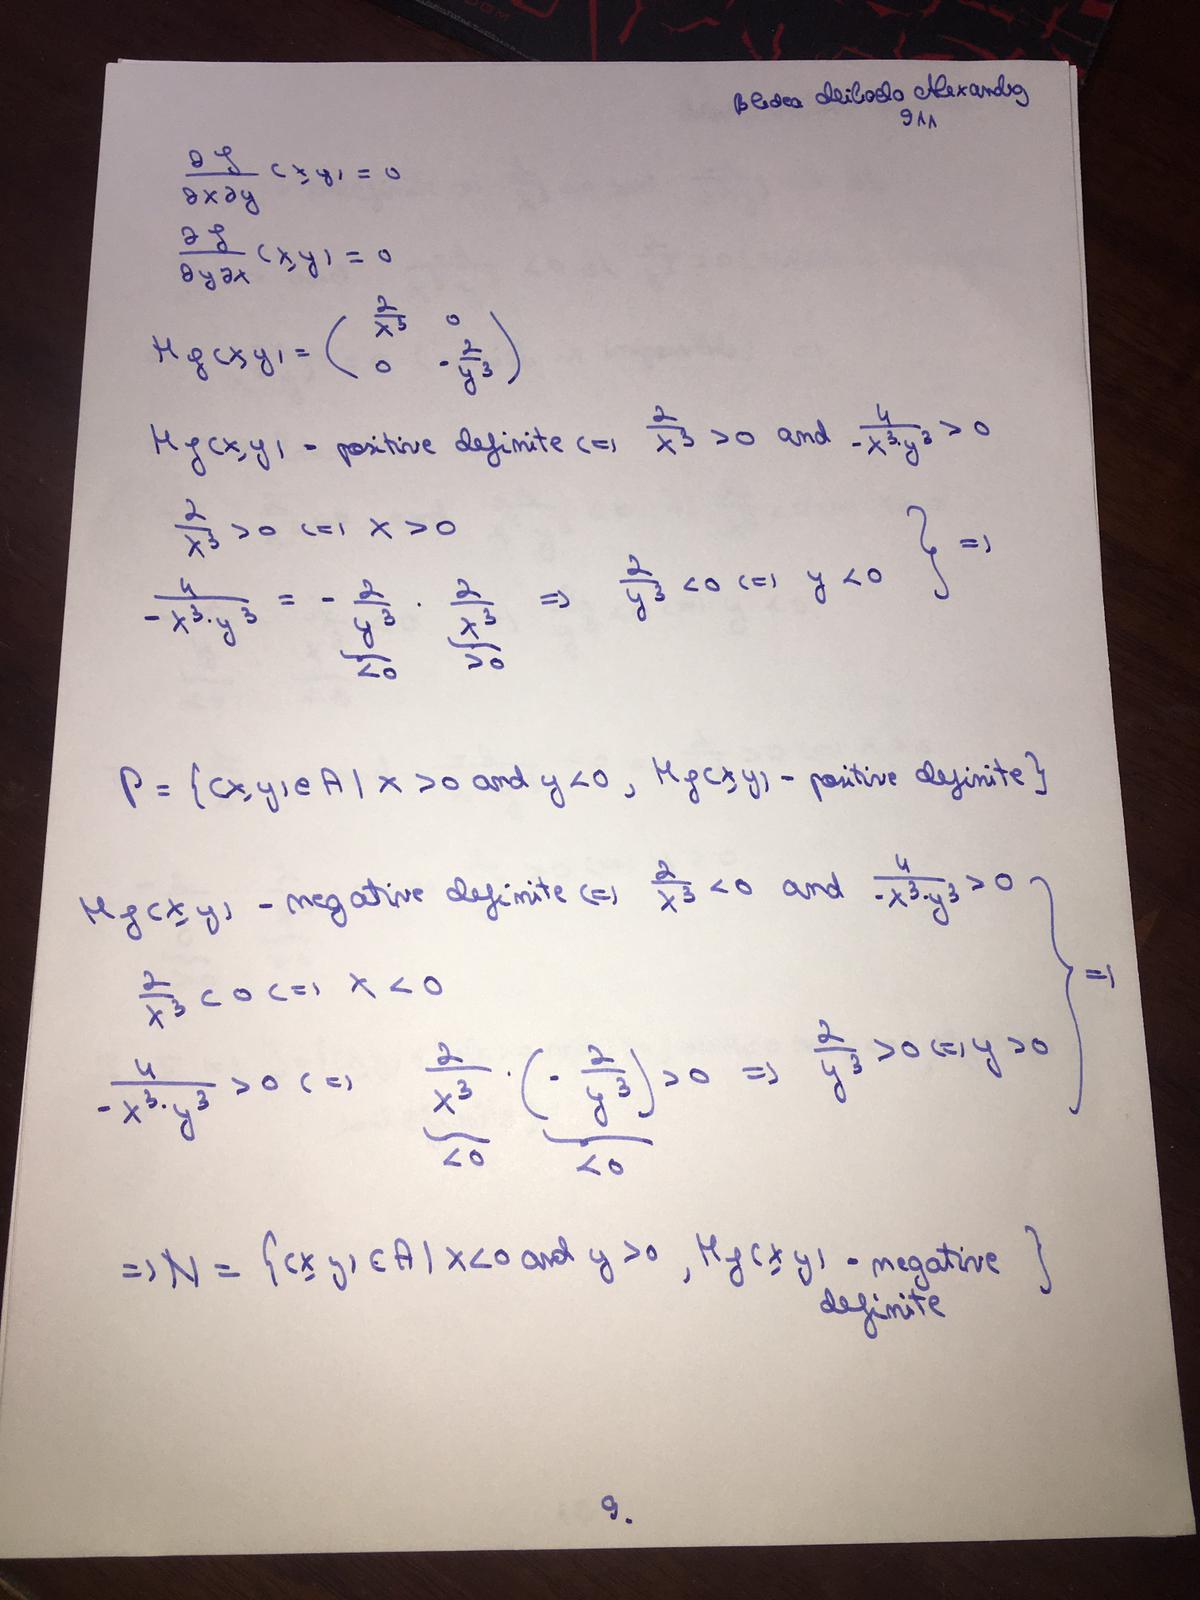 911
∂f/∂x∂y (x,y) = 0
∂f/∂y∂x (x,y) = 0
Hf(x,y) = ( 2/x³ 0
0 -2/y³ )
Hf(x,y) - positive definite <=> 2/x³ > 0 and 4/-x³·y³ > 0
2/x³ > 0 <=> x > 0
4/-x³·y³ = - 2/y³ · 2/x³ => 2/y³ < 0 <=> y < 0 } =>
<0 >0
P = {(x,y) ∈ A | x > 0 and y < 0, Hf(x,y) - positive definite}
Hf(x,y) - negative definite <=> 2/x³ < 0 and 4/-x³·y³ > 0
2/x³ < 0 <=> x < 0 } =>
4/-x³·y³ > 0 <=> 2/x³ · (- 2/y³) > 0 => 2/y³ > 0 <=> y > 0
<0 <0
=> N = {(x,y) ∈ A | x < 0 and y > 0, Hf(x,y) - negative
definite }
9.